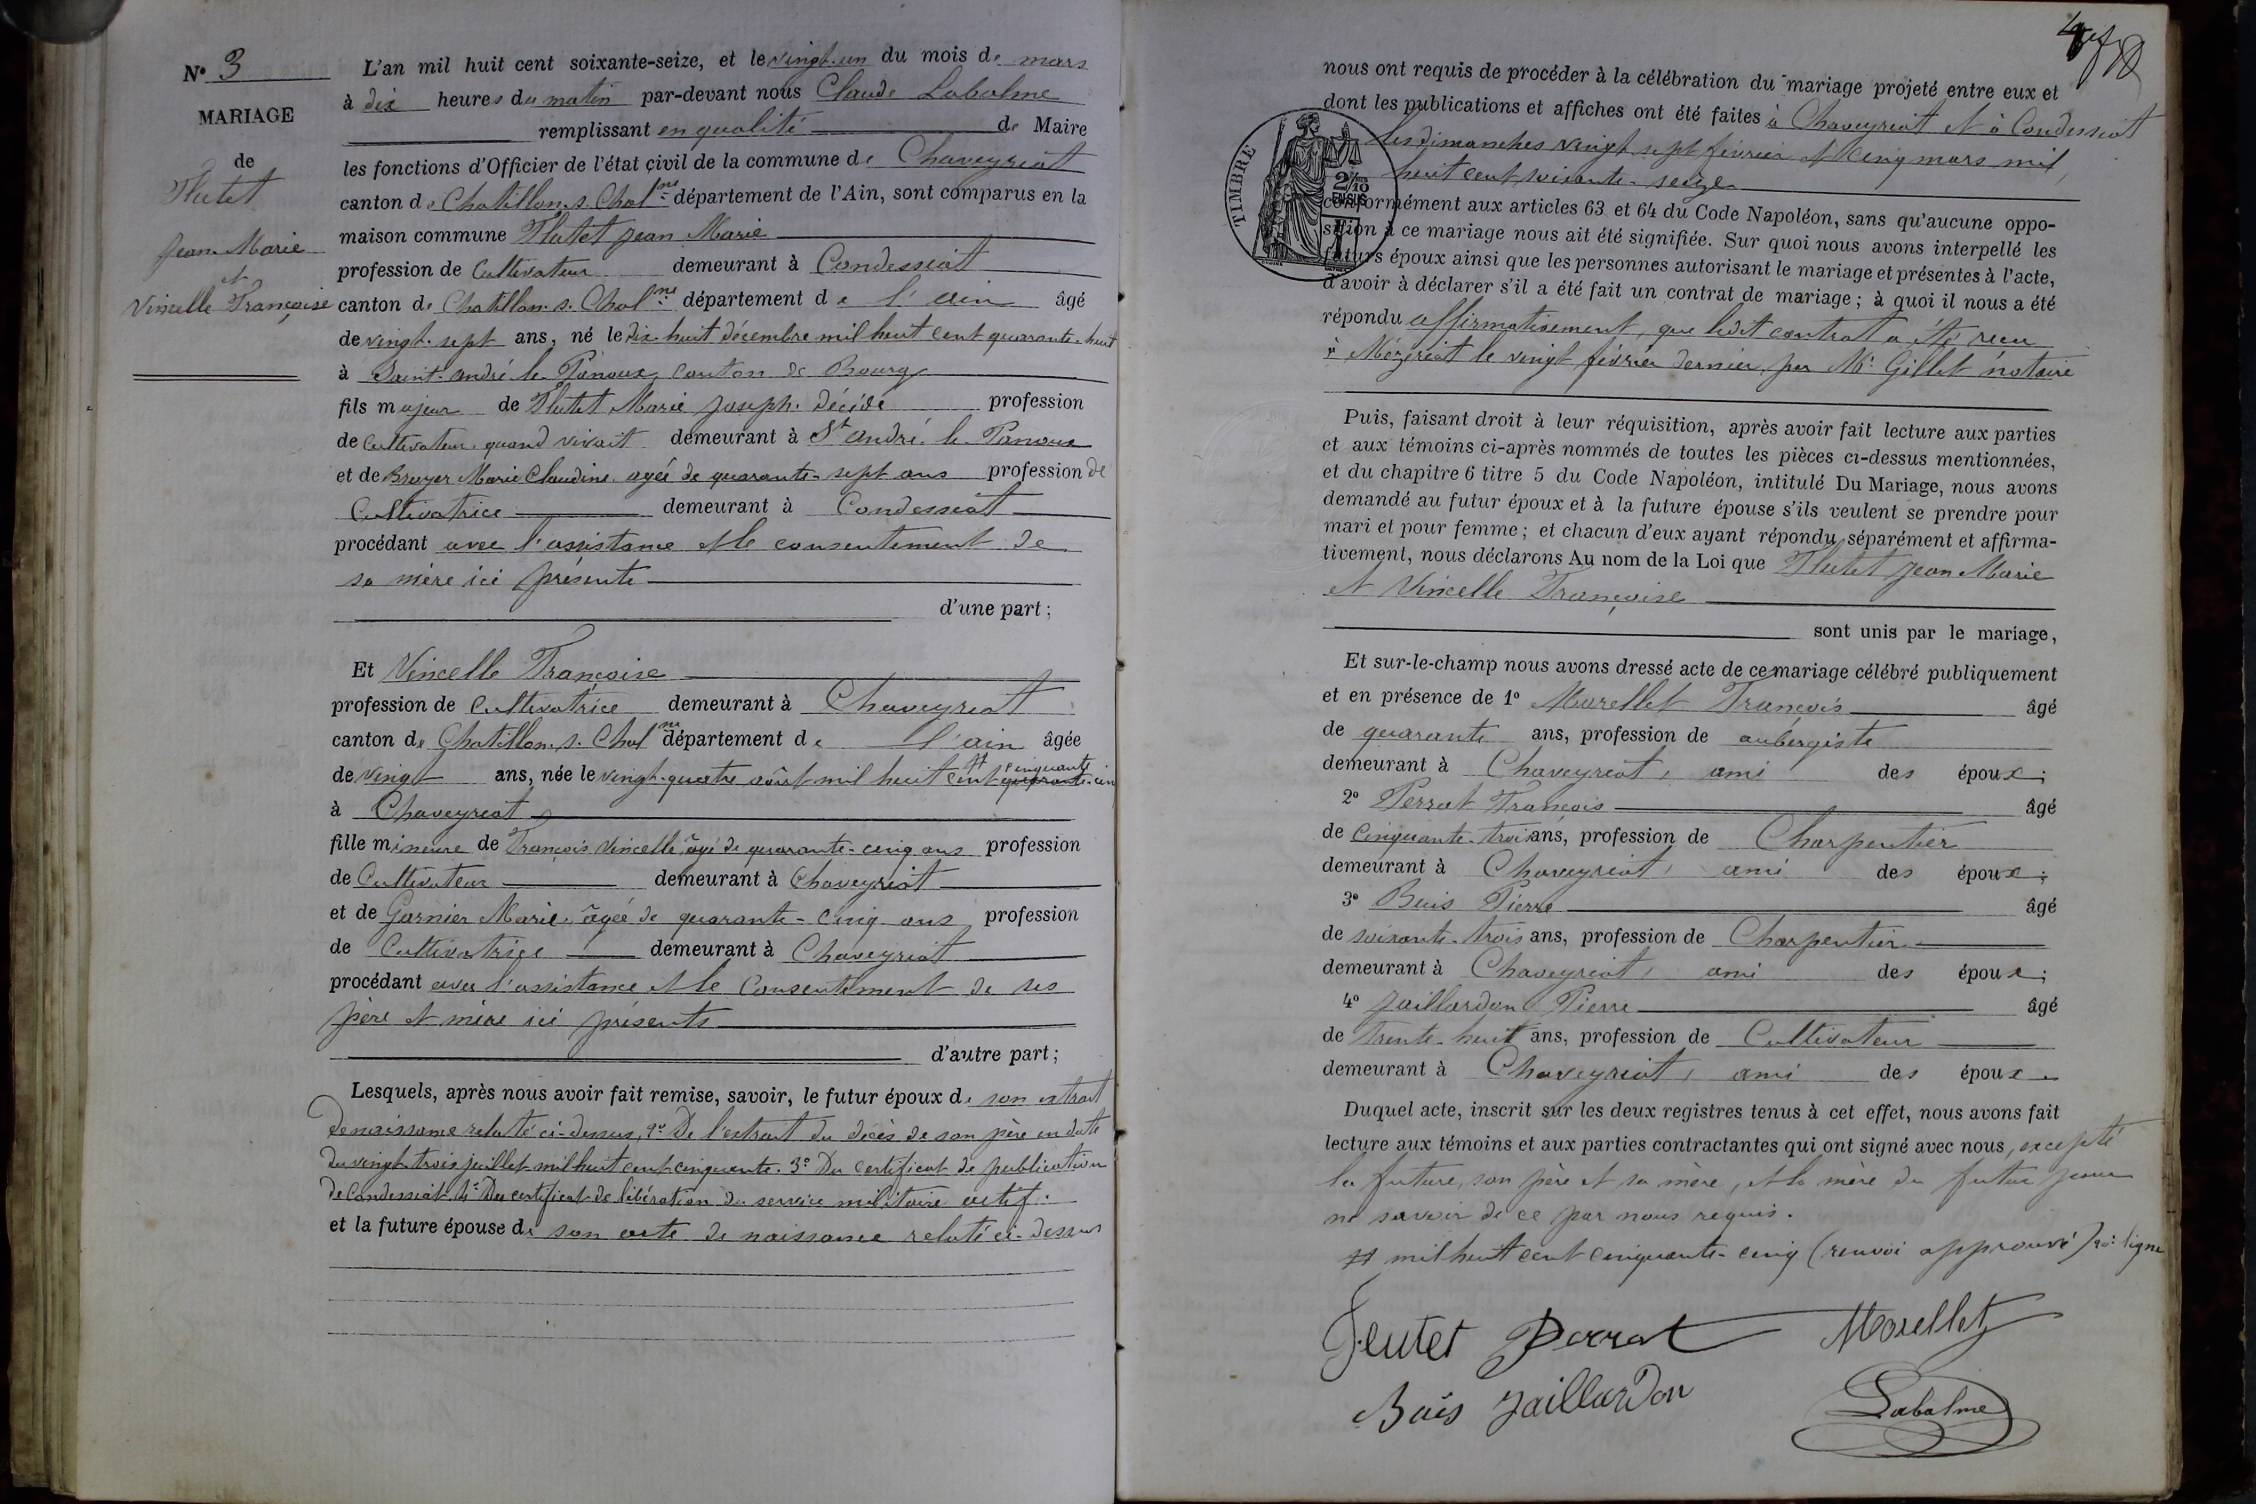 N° 3
MARIAGE
de
Flutet
Jean Marie
et
Vincelle Françoise
L'an mil huit cent soixante-seize, et le vingt-un du mois de mars
à dix heures du matin par-devant nous Claude Labalme
remplissant en qualité de Maire
les fonctions d'Officier de l'état civil de la commune de Chaveyriat
canton de Chatillon s. Chal.ne département de l'Ain, sont comparus en la
maison commune Flutet Jean Marie
profession de Cultivateur demeurant à Condessiat
canton de Chatillon s. Chal.ne département de l'ain âgé
de vingt-sept ans, né le dix-huit décembre mil huit cent quarante-huit
à Saint-andré-le-Panoux, canton de Bourg
fils majeur de Flutet Marie Joseph. Décédé profession
de cultivateur quand vivait demeurant à St André-le-Panoux
et de Broyer Marie Claudine agée de quarante-sept ans profession de
Cultivatrice demeurant à Condessiat
procédant avec l'assistance et le consentement de
sa mère ici présente
d'une part ;
Et Vincelle Françoise
profession de Cultivatrice demeurant à Chaveyriat
canton de Chatillon. s. Chal ne département de l'ain âgée
de vingt ans, née le vingt-quatre août mil huit cent quarante-cinq
# cinquante
à Chaveyriat
fille mineure de François Vincelle, âgé de quarante-cinq ans profession
de Cultivateur demeurant à Chaveyriat
et de Garnier Marie. âgée de quarante-cinq ans profession
de Cultivatrice demeurant à Chaveyriat
procédant avec l'assistance et le Consentement de ses
père et mère ici présents
d'autre part ;
Lesquels, après nous avoir fait remise, savoir, le futur époux de son extrait
de naissance relaté ci-dessus, 2° De l'extrait du décès de son père en date
du vingt-trois juillet mil huit cent cinquante. 3° Du certificat de publication
de Condessiat. 4° Du certificat de libération du service militaire actif.
et la future épouse de son acte de naissance relaté ci-dessus
nous ont requis de procéder à la célébration du mariage projeté entre eux et
dont les publications et affiches ont été faites à Chaveyriat et à Condessiat
les dimanches vingt sept février et cinq mars mil
huit cent soixante-seize
TIMBRE
2 2/10
EN SUS
conformément aux articles 63 et 64 du Code Napoléon, sans qu'aucune oppo-
sition à ce mariage nous ait été signifiée. Sur quoi nous avons interpellé les
futurs époux ainsi que les personnes autorisant le mariage et présentes à l'acte,
d'avoir à déclarer s'il a été fait un contrat de mariage ; à quoi il nous a été
répondu affirmativement, que ledit contrat a été reçu
à Mézériat le vingt février dernier, par Me Gillet notaire
Puis, faisant droit à leur réquisition, après avoir fait lecture aux parties
et aux témoins ci-après nommés de toutes les pièces ci-dessus mentionnées,
et du chapitre 6 titre 5 du Code Napoléon, intitulé Du Mariage, nous avons
demandé au futur époux et à la future épouse s'ils veulent se prendre pour
mari et pour femme ; et chacun d'eux ayant répondu séparément et affirma-
tivement, nous déclarons Au nom de la Loi que Flutet Jean Marie
et Vincelle Françoise
sont unis par le mariage,
Et sur-le-champ nous avons dressé acte de ce mariage célébré publiquement
et en présence de 1° Morellet François âgé
de quarante ans, profession de aubergiste
demeurant à Chaveyriat, ami des époux ;
2° Perrat François âgé
de Cinquante-trois ans, profession de Charpentier
demeurant à Chaveyriat, ami des époux ;
3° Buis Pierre âgé
de soixante-trois ans, profession de Charpentier
demeurant à Chaveyriat, ami des époux ;
4° Jaillardon Pierre âgé
de trente-huit ans, profession de Cultivateur
demeurant à Chaveyriat, ami des époux
Duquel acte, inscrit sur les deux registres tenus à cet effet, nous avons fait
lecture aux témoins et aux parties contractantes qui ont signé avec nous, excepté
la future, son père et sa mère, et la mère du futur pour
ne savoir de ce par nous requis.
# mil huit cent cinquante-cinq (renvoi approuvé) 20e ligne
Feutet Perrat Morellet
Buis Jaillardon Labalme